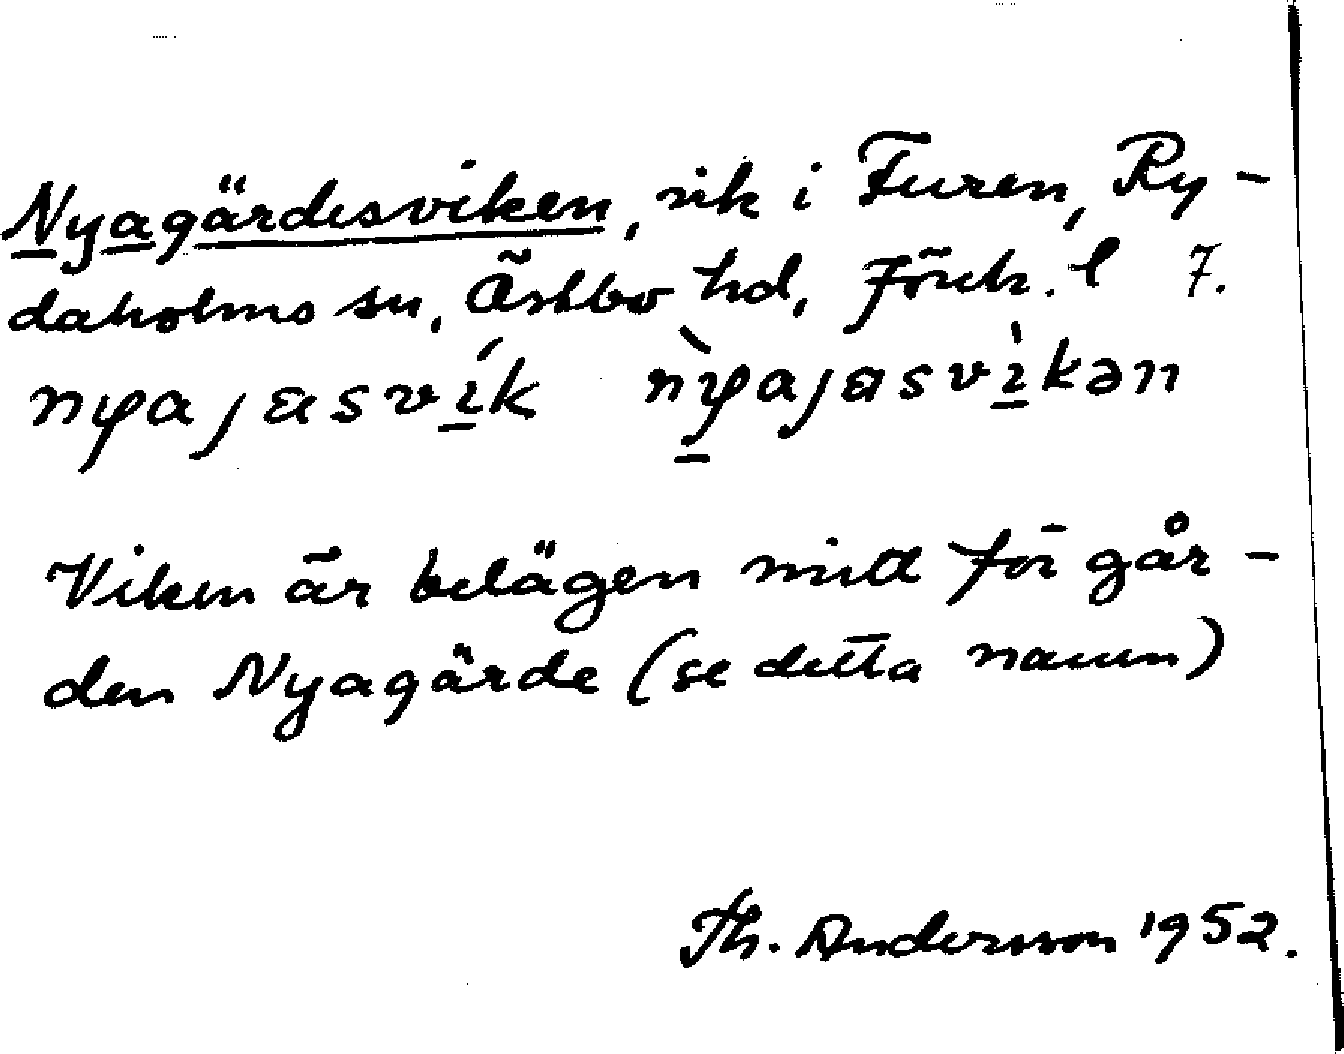 Nyagärdesviken, vik i Furen, Ry-
daholms sn, Östbo hd, Jönk. l 7.
nyajasvík nỳajasvìkən
Viken är belägen mitt för går-
den Nyagärde (se detta namn)
Th. Andersson 1952.